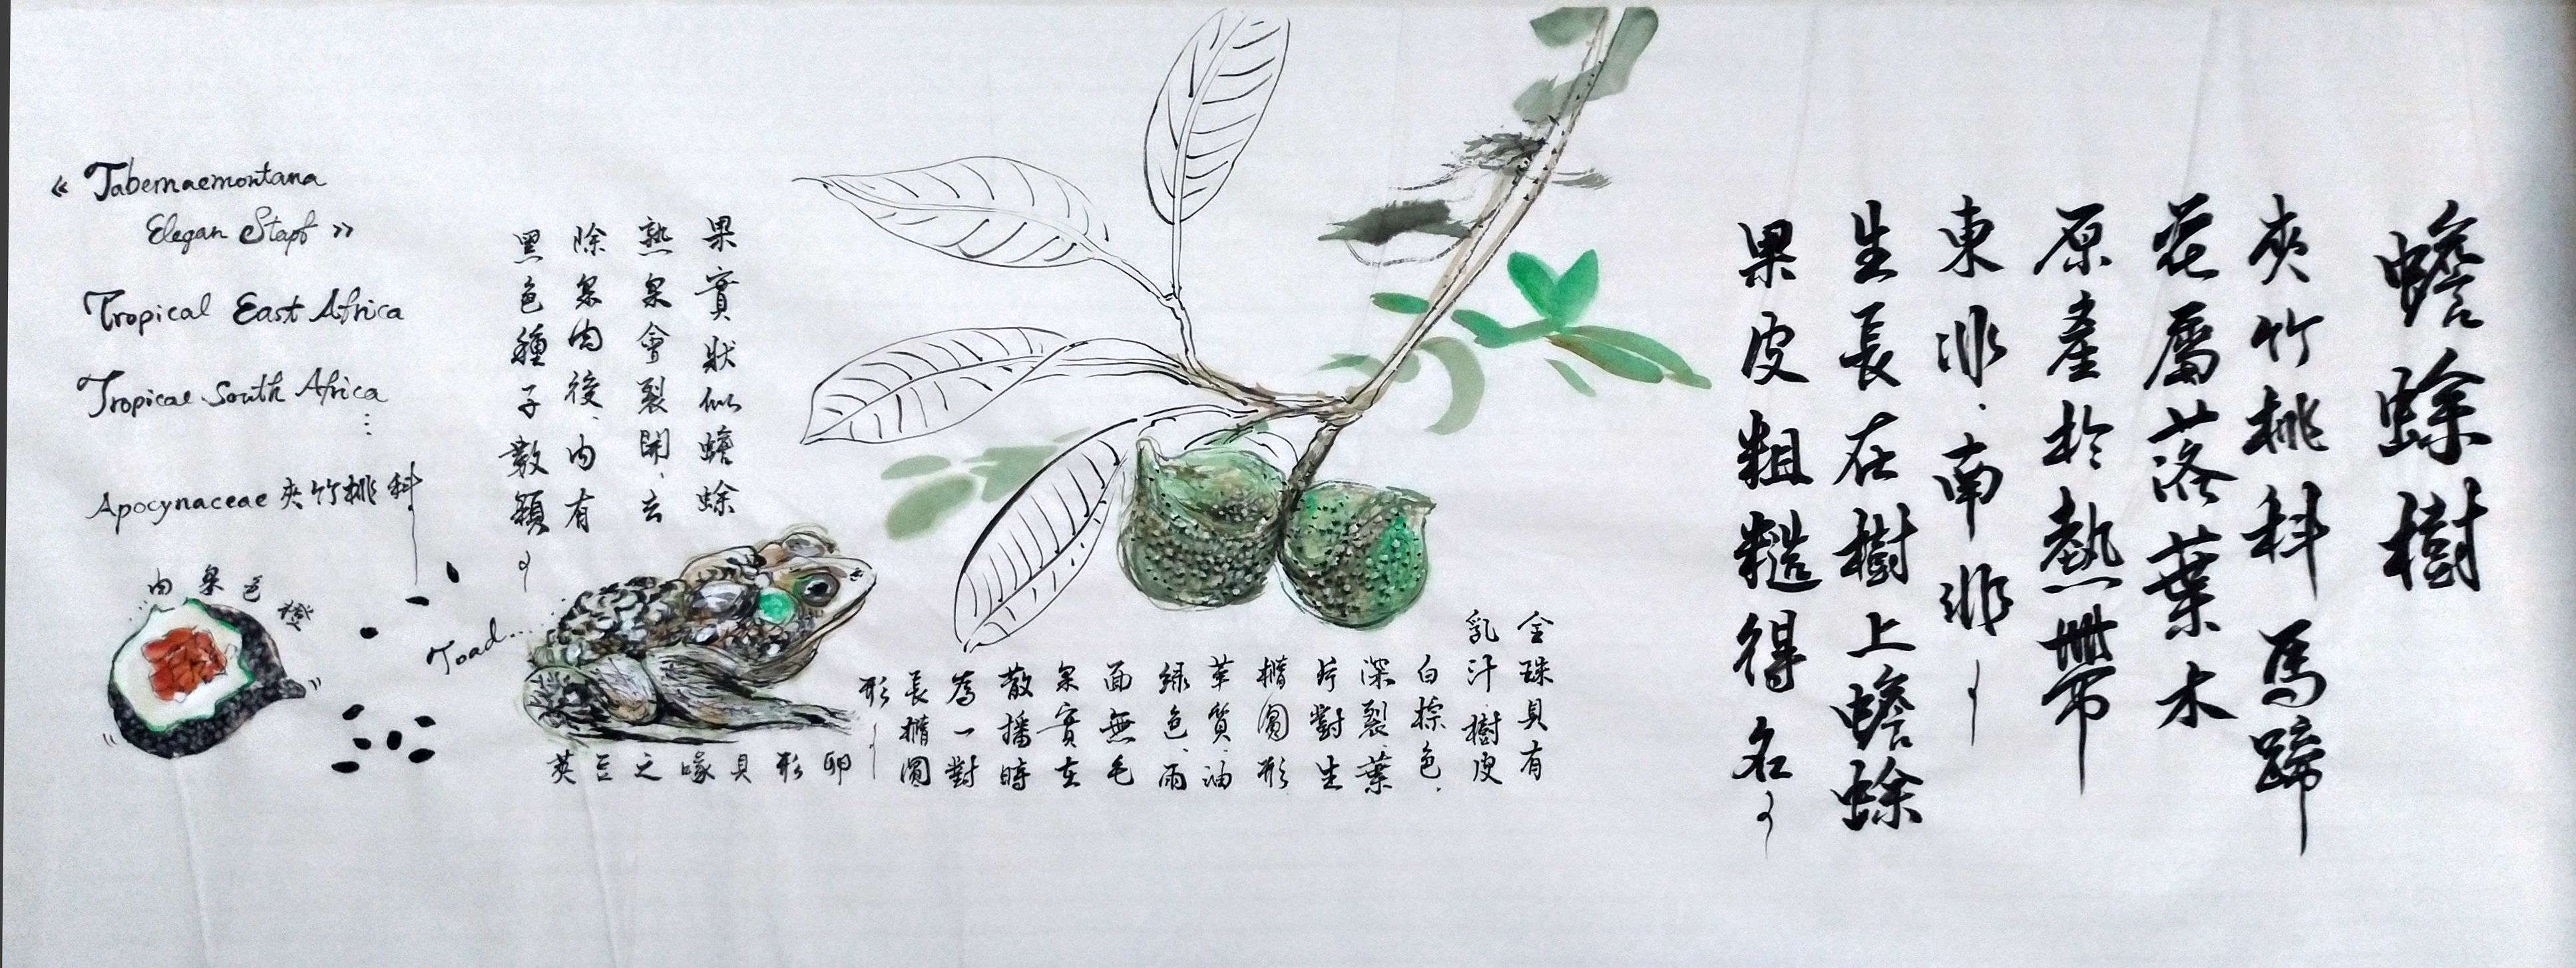 蟾蜍樹
夾竹桃科馬蹄
花屬落葉木
原產於熱帶
東非、南非
生長在樹上蟾蜍
果皮粗糙得名
全珠具有
乳汁、樹皮
白棕色、
深裂、葉
片對生
橢圓形
革質、油
綠色、兩
面無毛
果實在
散播時
為一對
長橢圓
形
卵形具喙之豆莢
果實狀似蟾蜍
熟果會裂開、去
除果肉後、內有
黑色種子數顆
« Tabernaemontana
Elegan Stapf »
Tropical East Africa
Tropical South Africa
...
Apocynaceae 夾竹桃科
Toad...
橙色果肉